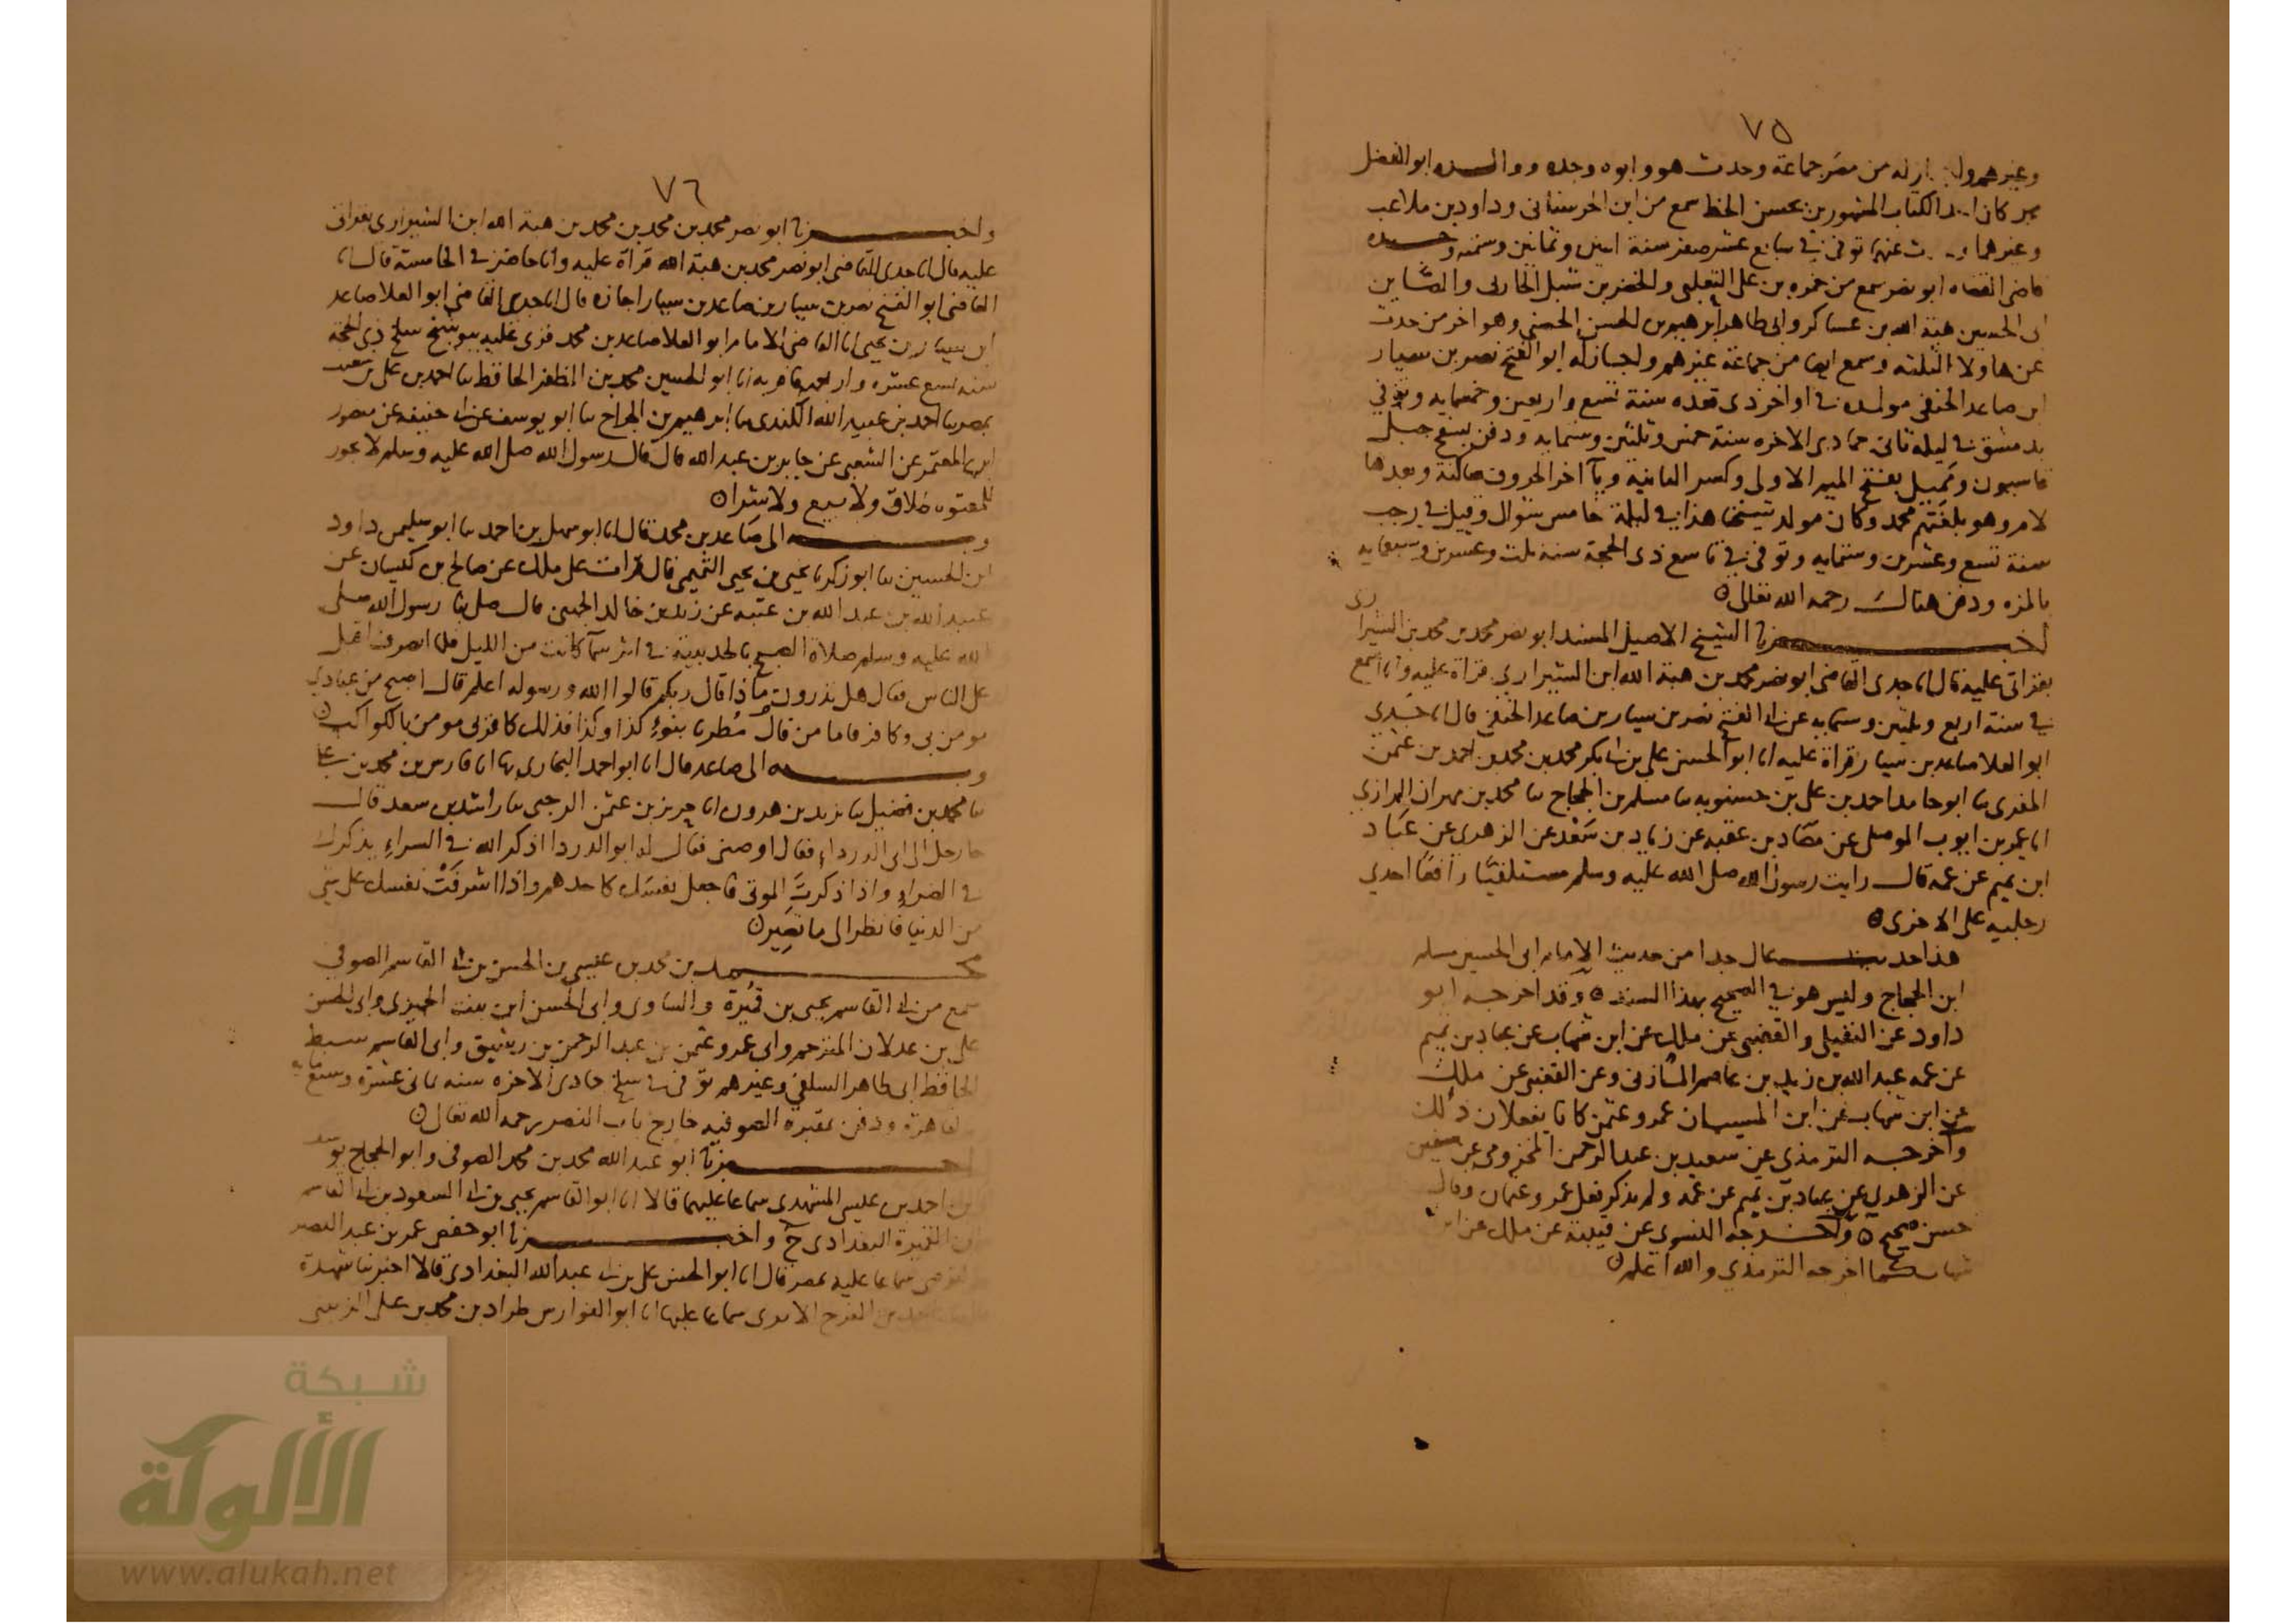 ٧٥
وغيرهم من مصر جماعة وحدث هو وابوه وجده ووالده ابو الفضل
كان الكتاب المشهورين بحسن الخط سمع من ابن الحرستاني وداود بن ملاعب
وغيرهما توفي في سابع عشر صفر سنة اثنين وثمانين وستمه وجده
قاضي القضاه ابو نصر سمع من حمزه بن علي الثعلبي والخضر بن شبل الحارثي والصاين
ابى الحسين هبة الله بن عساكر وابي طاهر ابرهيم بن الحسن الحصني وهو اخر من حدث
عن هاولا الثلثه وسمع ايضا من جماعة غيرهم واجاز له ابو الفتح نصر بن سيار
ابن صاعد الحنفي مولده في اواخر ذى قعده سنة تسع واربعين وخمسمايه وتوفي
بدمشق في ليلة ثاني جمادى الاخره سنة خمس وثلثين وستمايه ودفن بسفح جبل
قاسيون ومميل بفتح الميم الاولى وكسر الثانية ويآ اخر الحروف ساكنة وبعدها
لام وهو بلغتهم محمد وكان مولد شيخنا هذا في ليلة خامس شوال وقيل في رجب
سنة تسع وعشرين وستمايه وتوفي في تاسع ذى الحجة سنة ثلث وعشرين وسبعمايه
بالمزه ودفن هناك رحمه الله تعالى ه
اخبرنا الشيخ الاصيل المسند ابو نصر محمد بن محمد بن الشيرازى
بقراتي عليه قال انا جدى القاضي ابو نصر محمد بن هبة الله ابن الشيرازي قراة عليه وانا اسمع
في سنة اربع وثلثين وستمايه عن ابى الفتح نصر بن سيار بن صاعد الحنفي قال انا جدي
ابو العلا صاعد بن سيار قراة عليه انا ابو الحسن علي بن ابى بكر محمد بن محمد بن احمد بن عثمن
المقرى نا ابو حامد احمد بن علي بن حسنويه نا مسلم بن الحجاج نا محمد بن مهران الرازي
انا عمر بن ايوب الموصلي عن مصاد بن عقبه عن زياد بن سعد عن الزهري عن عباد
ابن تميم عن عمه قال رايت رسول الله صلى الله عليه وسلم مستلقيا رافعا احدي
رجليه على الاخرى ه
هذا حديث عال جدا من حديث الامام ابى الحسين مسلم
ابن الحجاج وليس هو في الصحيح بهذا السند ه وقد اخرجه ابو
داود عن النفيلي والقعنبي عن ملك عن ابن شهاب عن عباد بن تميم
عن عمه عبد الله بن زيد بن عاصم المازني وعن القعنبي عن ملك
عن ابن شهاب عن ابن المسيب ان عمر وعثمن كانا يفعلان ذلك
واخرجه الترمذي عن سعيد بن عبد الرحمن المخزومي عن سفين
عن الزهري عن عباد بن تميم عن عمه ولم يذكر فعل عمر وعثمان وقال
حسن صحيح ه واخرجه النسوي عن قتيبة عن ملك عن ابن
شهاب كما اخرجه الترمذي والله اعلم ه
٧٦
واخبرنا ابو نصر محمد بن محمد بن محمد بن هبة الله ابن الشيرازى بقراتى
عليه قال انا جدى القاضي ابو نصر محمد بن هبة الله قراة عليه وانا حاضر في الخامسة قال انا
القاضي ابو الفتح نصر بن سيار بن صاعد بن سيار اجازه قال انا جدى القاضي ابو العلا صاعد
ابن سيار بن يحيى انا القاضي الامام ابو العلا صاعد بن محمد قرى عليه ببوشنج سلخ ذى الحجة
سنه تسع عشره واربعمايه انا ابو الحسين محمد بن المظفر الحافظ نا احمد بن علي بن سعيد
بمصر نا احمد بن عبيد الله الكندى نا ابرهيم بن الجراح نا ابو يوسف عن ابى حنيفه عن منصور
ابن المعتمر عن الشعبي عن جابر بن عبد الله قال قال رسول الله صلى الله عليه وسلم لا يجوز
للمعتوه طلاق ولا بيع ولا شراه
وبه الى صاعد بن محمد قال انا ابو سهل بن احمد نا ابو سليمن داود
ابن الحسين نا ابو زكريا يحيى بن يحيى التميمي قال قرات على ملك عن صالح بن كيسان عن
عبيد الله بن عبد الله بن عتبه عن زيد بن خالد الجهنى قال صلى بنا رسول الله صلى
الله عليه وسلم صلاة الصبح بالحديبية في اثر سمآ كانت من الليل فلما انصرف اقبل
على الناس فقال هل تدرون ماذا قال ربكم قالوا الله ورسوله اعلم قال اصبح من عبادي
مومن بي وكافر فاما من قال مُطرنا بنوءِ كذا وكذا فذلك كافر بي مومن بالكواكب ه
وبه الى صاعد قال انا ابو احمد البخارى بها انا فارس بن محمد بن علي
نا محمد بن فضيل نا يزيد بن هرون انا حريز بن عثمن الرحبي نا راشد بن سعد قال
جا رجل الى ابى الدرداء فقال اوصنى فقال له ابو الدردا اذكر الله في السراءِ يذكرك
في الضراءِ واذا ذكرتَ الموتى فاجعل نفسَك كاحدهم واذا اشرفَتْ نفسك على شي
من الدنيا فانظر الى ما تصير ه
محمد بن محمد بن عيسى بن الحسن بن ابى القاسم الصوفي
سمع من ابى القاسم يحيى بن قُميرة والساوى وابى الحسن ابن بنت الجميزى وابى الحسن
علي بن عدلان المترجم وابى عمرو عثمن بن عبد الرحمن بن رشيق وابى القاسم سبط
الحافظ ابى طاهر السلفي وغيرهم توفي في سلخ جمادى الاخره سنه ثمانى عشرة وسبعمايه
بالقاهرة ودفن بمقبره الصوفيه خارج باب النصر رحمه الله تعالى ه
اخبرنا ابو عبد الله محمد بن محمد الصوفي وابو الحجاج يوسف
بن احمد بن عيسى المشهدى سماعا عليهما قالا انا ابو القاسم يحيى بن ابى السعود بن ابى القاسم
ابن القميرة البغدادى ح واخبرنا ابو حفص عمر بن عبد النصير
القوصي سماعا عليه بمصر قال انا ابو الحسن علي بن ابى عبد الله البغدادى قالا اخبرتنا شهدة
بنت احمد بن الفرج الابرى سماعا عليها انا ابو الفوارس طراد بن محمد بن علي الزينبي
شبكة
الألوكة
www.alukah.net